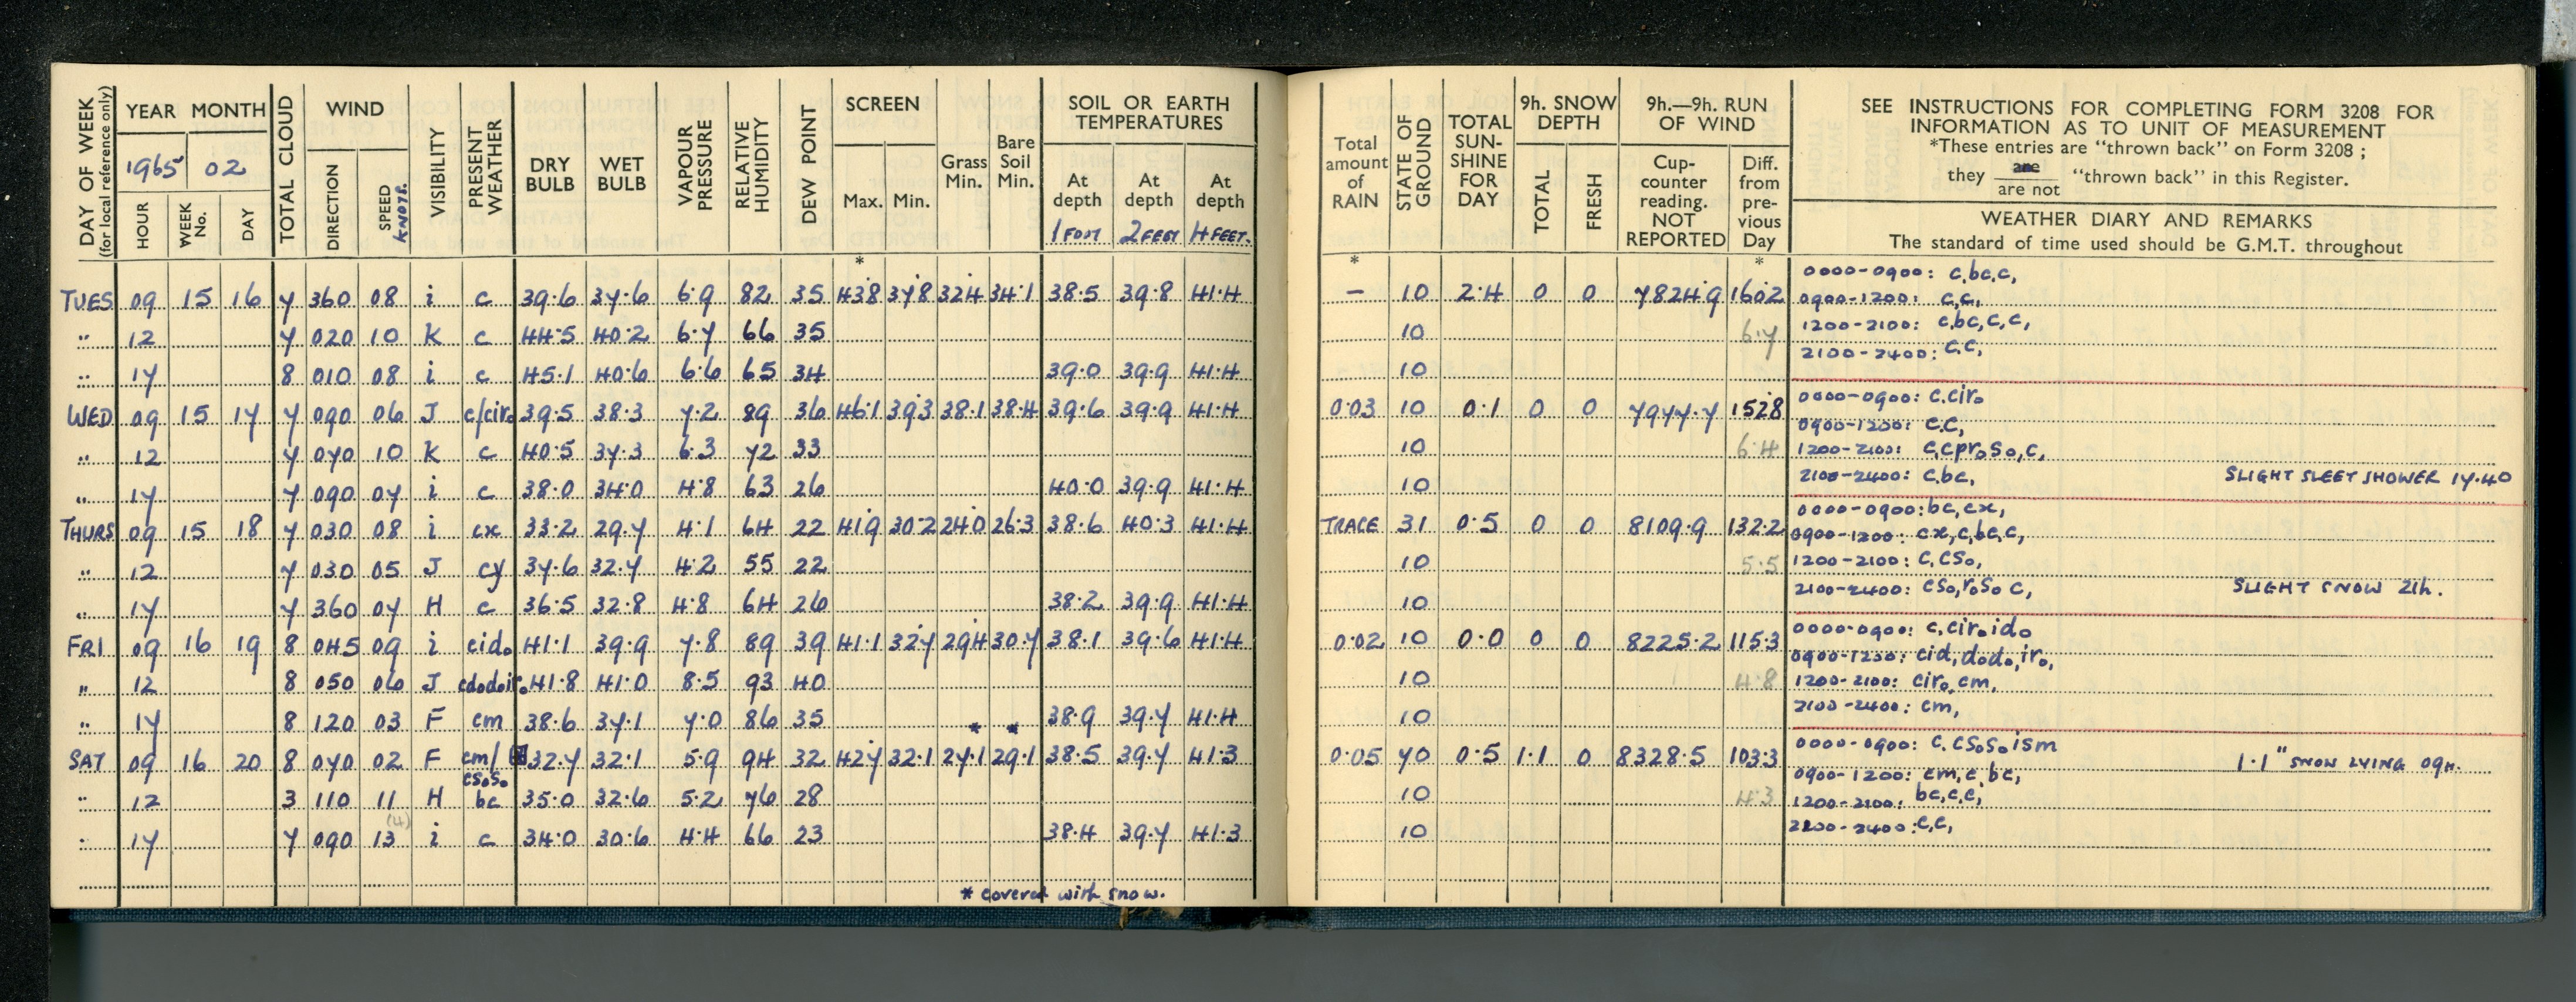 DAY OF WEEK (for local reference only) YEAR MONTH TOTAL CLOUD WIND VISIBILITY PRESENT WEATHER DRY BULB WET BULB VAPOUR PRESSURE RELATIVE HUMIDITY DEW POINT SCREEN Grass Min. Bare Soil Min. SOIL OR EARTH TEMPERATURES
1965 02
HOUR WEEK No. DAY DIRECTION SPEED KNOTS. Max. Min. At depth At depth At depth
1 FOOT 2 FEET 4 FEET.
*
TUES 09 15 16 7 360 08 i c 39.6 37.6 6.9 82 35 43.8 37.8 32.4 34.1 38.5 39.8 41.4
" 12 7 020 10 K c 44.5 40.2 6.7 66 35
" 17 8 010 08 i c 45.1 40.6 6.6 65 34 39.0 39.9 41.4
WED 09 15 17 7 090 06 J c/cir₀ 39.5 38.3 7.2 89 36 46.1 39.3 38.1 38.4 39.6 39.9 41.4
" 12 7 070 10 K c 40.5 37.3 6.3 72 33
" 17 7 090 07 i c 38.0 34.0 4.8 63 26 40.0 39.9 41.4
THURS 09 15 18 7 030 08 i cx 33.2 29.7 4.1 64 22 41.9 30.2 24.0 26.3 38.6 40.3 41.4
" 12 7 030 05 J cy 37.6 32.7 4.2 55 22
" 17 7 360 07 H c 36.5 32.8 4.8 64 26 38.2 39.9 41.4
FRI 09 16 19 8 045 09 i cid₀ 41.1 39.9 7.8 89 39 41.1 32.7 29.4 30.7 38.1 39.6 41.4
" 12 8 050 06 J cd₀d₀ir₀ 41.8 41.0 8.5 93 40
" 17 8 120 03 F cm 38.6 37.1 7.0 86 35 * * 38.9 39.7 41.4
SAT 09 16 20 8 070 02 F cm/ 32.7 32.1 5.9 94 32 42.7 32.1 27.1 29.1 38.5 39.7 41.3
cs₀s₀
" 12 3 110 11 H bc 35.0 32.6 5.2 76 28
(4)
" 17 7 090 13 i c 34.0 30.6 4.4 66 23 38.4 39.7 41.3
* covered with snow.
Total amount of RAIN STATE OF GROUND TOTAL SUN-SHINE FOR DAY 9h. SNOW DEPTH 9h.—9h. RUN OF WIND
TOTAL FRESH Cup-counter reading. NOT REPORTED Diff. from pre-vious Day
SEE INSTRUCTIONS FOR COMPLETING FORM 3208 FOR
INFORMATION AS TO UNIT OF MEASUREMENT
*These entries are "thrown back" on Form 3208 ;
they are / are not "thrown back" in this Register.
WEATHER DIARY AND REMARKS
The standard of time used should be G.M.T. throughout
* *
0000-0900: c,bc,c,
— 10 2.4 0 0 7824.9 160.2 0900-1200: c,c,
10 6.7 1200-2100: c,bc,c,c,
2100-2400: c.c,
10
0.03 10 0.1 0 0 7977.7 152.8 0000-0900: c.cir₀
0900-1200: c.c,
10 6.4 1200-2100: c,cpr₀s₀,c,
10 2100-2400: c,bc, SLIGHT SLEET SHOWER 17.40
TRACE 31 0.5 0 0 8109.9 132.2 0000-0900: bc,cx,
0900-1200: cx,c,bc,c,
10 5.5 1200-2100: c,cs₀,
10 2100-2400: cs₀,r₀s₀ c, SLIGHT SNOW 21h.
0.02 10 0.0 0 0 8225.2 115.3 0000-0900: c,cir₀id₀
0900-1200: cid,d₀d₀,ir₀,
10 4.8 1200-2100: cir₀,cm,
10 2100-2400: cm,
0.05 70 0.5 1.1 0 8328.5 103.3 0000-0900: c,cs₀s₀ism 1.1" SNOW LYING 09H.
0900-1200: cm,c,bc,
10 4.3 1200-2100: bc,c,c,
10 2100-2400: c,c,